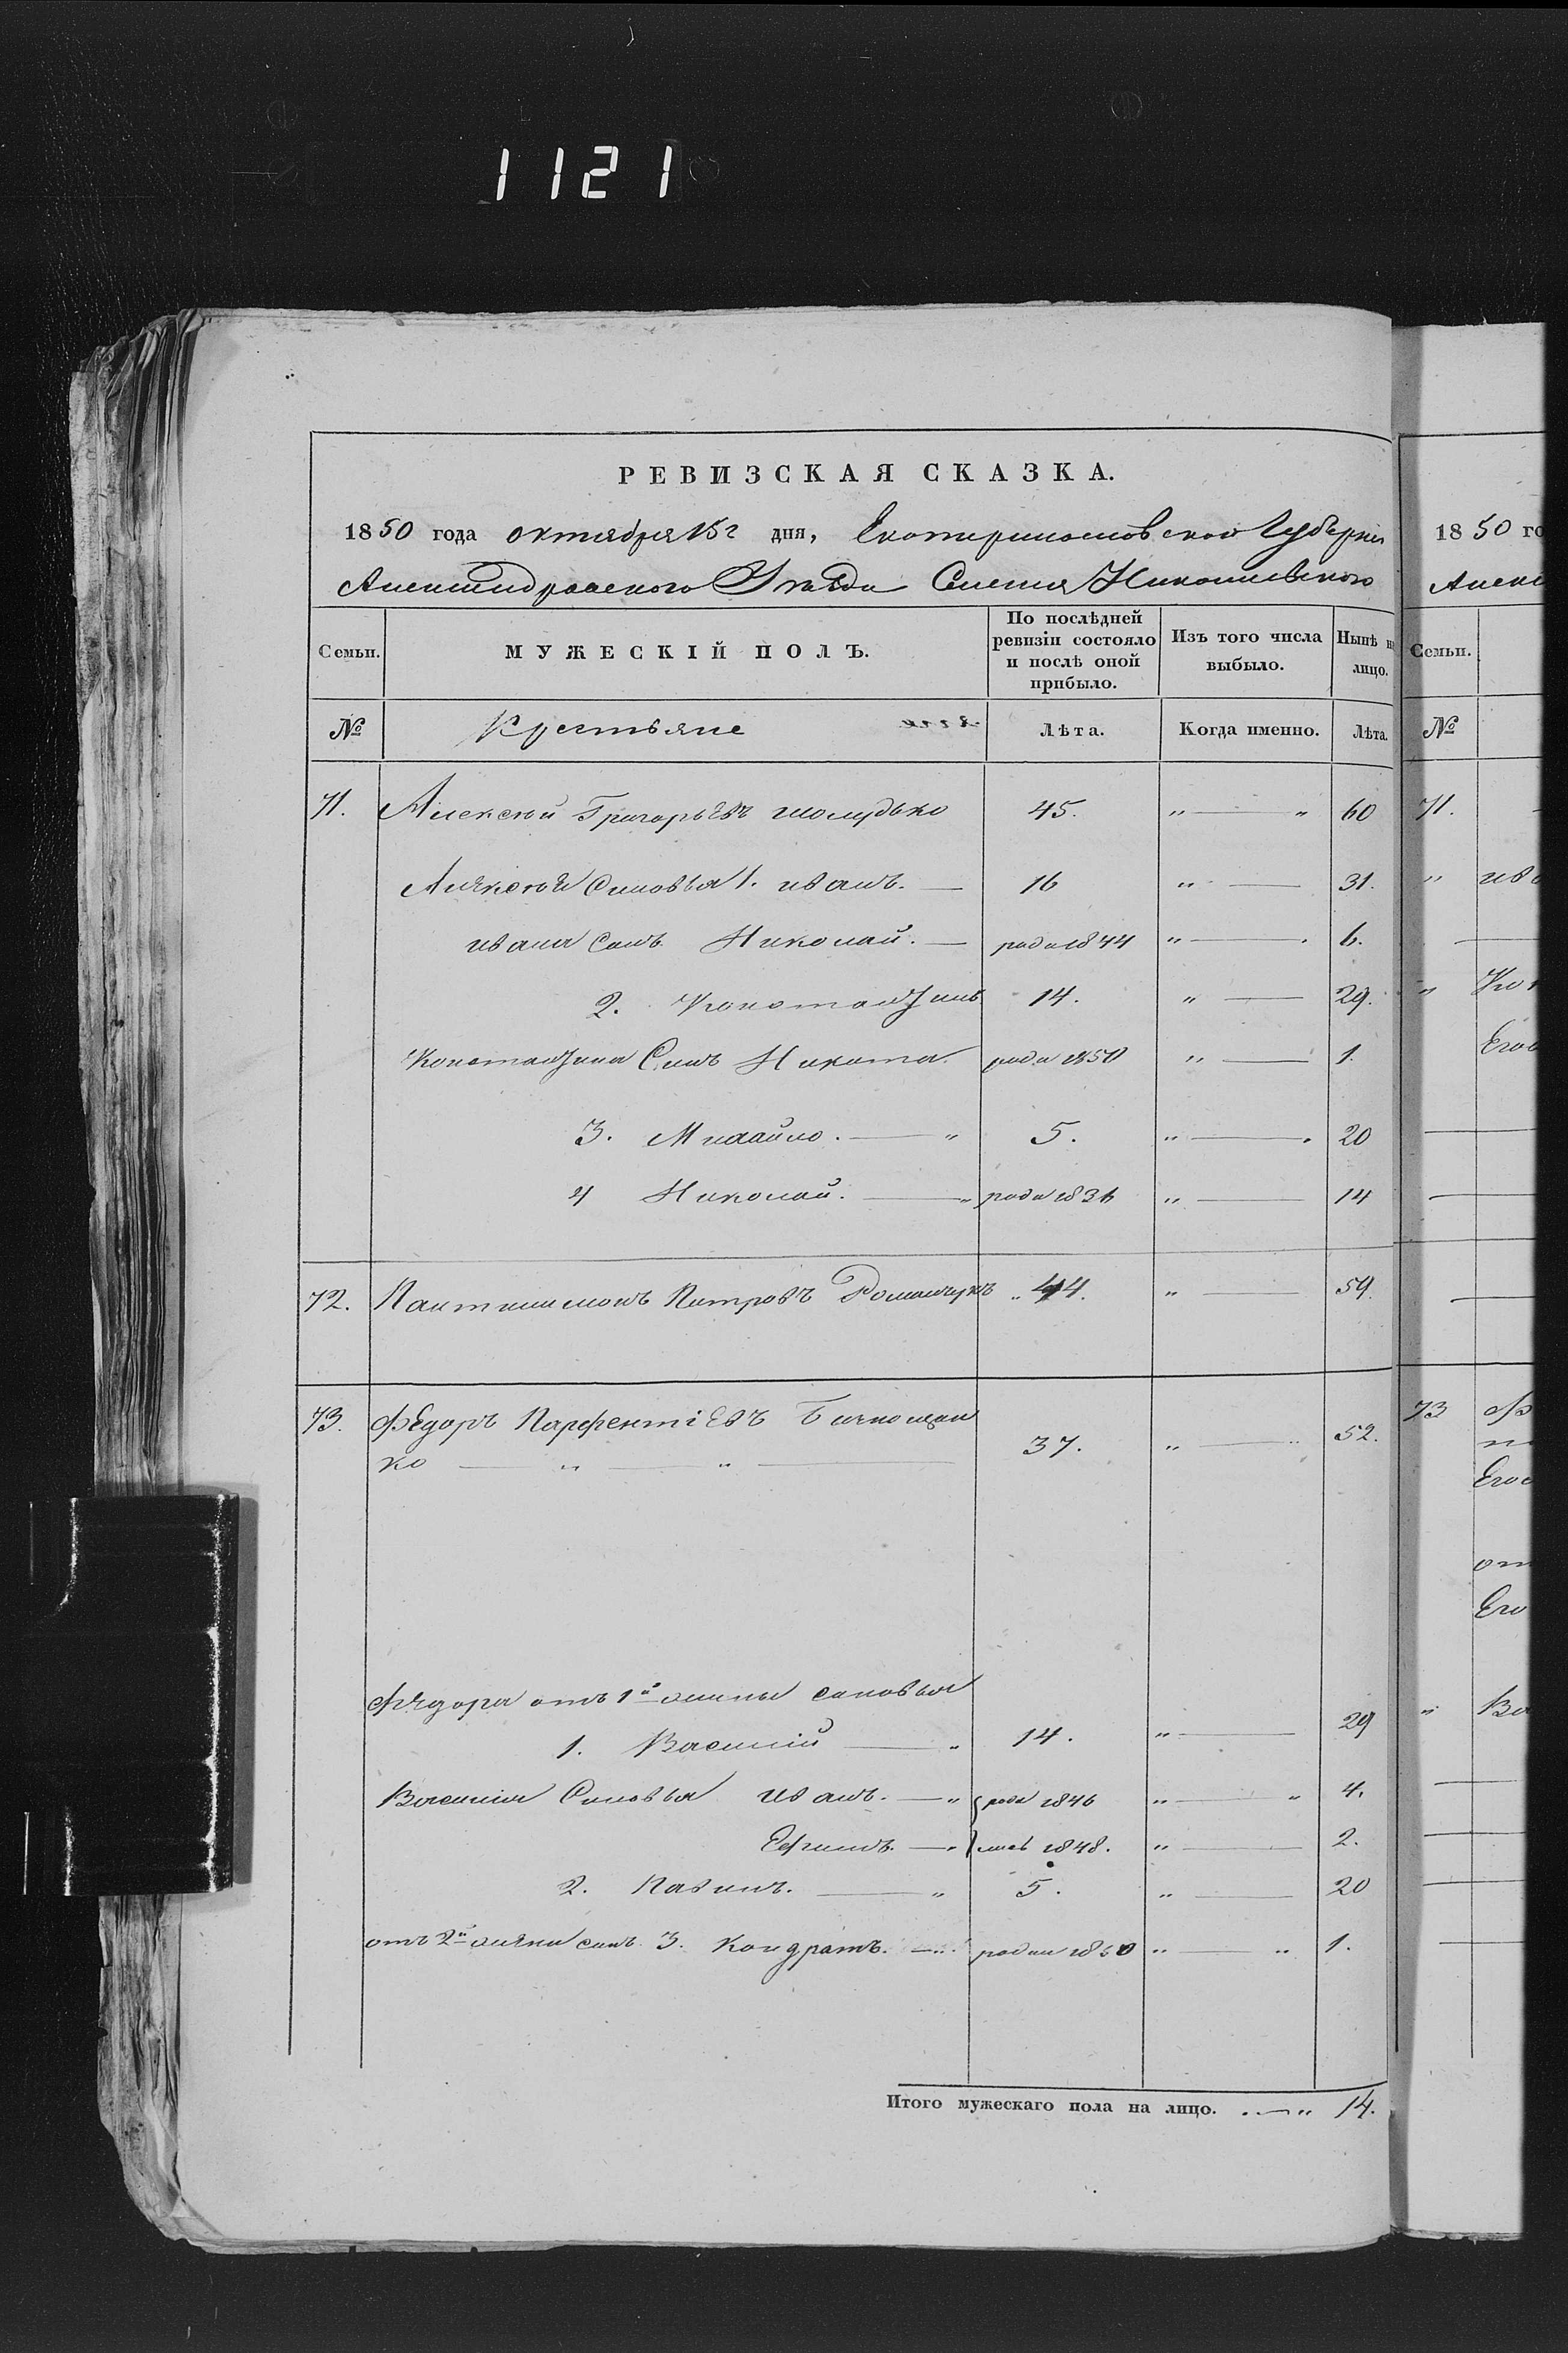 1121
РЕВИЗСКАЯ СКАЗКА.
1850 года октября 15г дня, Екатеринославской Губерніи
Александровского Уѣзда Селенія Николаевского
Семьи. МУЖЕСКІЙ ПОЛЪ. По послѣдней ревизіи состояло и послѣ оной прибыло. Изъ того числа выбыло. Нынѣ на лицо.
№ Крестьяне Лѣта. Когда именно. Лѣта.
71. Алексѣй Григорьевъ Шолудько 45. „ — „ 60
Алексѣя Сыновья 1. иванъ. — 16 „ — 31.
ивана Сынъ Николай. — родил 1844 „ — . 6.
2. Констатинъ 14. „ — 29.
Констатина Сынъ Никита родил 1850 „ — 1.
3. Михайло. — „ 5. „ — . 20
4 Николай. — „ родил 1836 „ — 14
72. Пантилимонъ Питровъ Романчукъ „ 44. „ — 59.
73. Федоръ Парфентіевъ
ко — „ — „ — 37. „ — „ 52.
Федора отъ 1й жины сыновья
1. Василій — „ 14. „ — 29
Василия Сыновья иванъ. — „ роди 1846 „ — „ 4.
Ефимъ. — „ лись 1848. „ — 2.
2. Павилъ. — „ 5. „ — 20
отъ 2й жены сынъ 3. Кондратъ. — „ родил 1850 „ — „ 1.
Итого мужескаго пола на лицо. . — „ 14.
1850 го
Алекс
Семьи.
№
71.
„ ива
„ Кон
Его
73 Ф
Его
от
Его
„ Ва